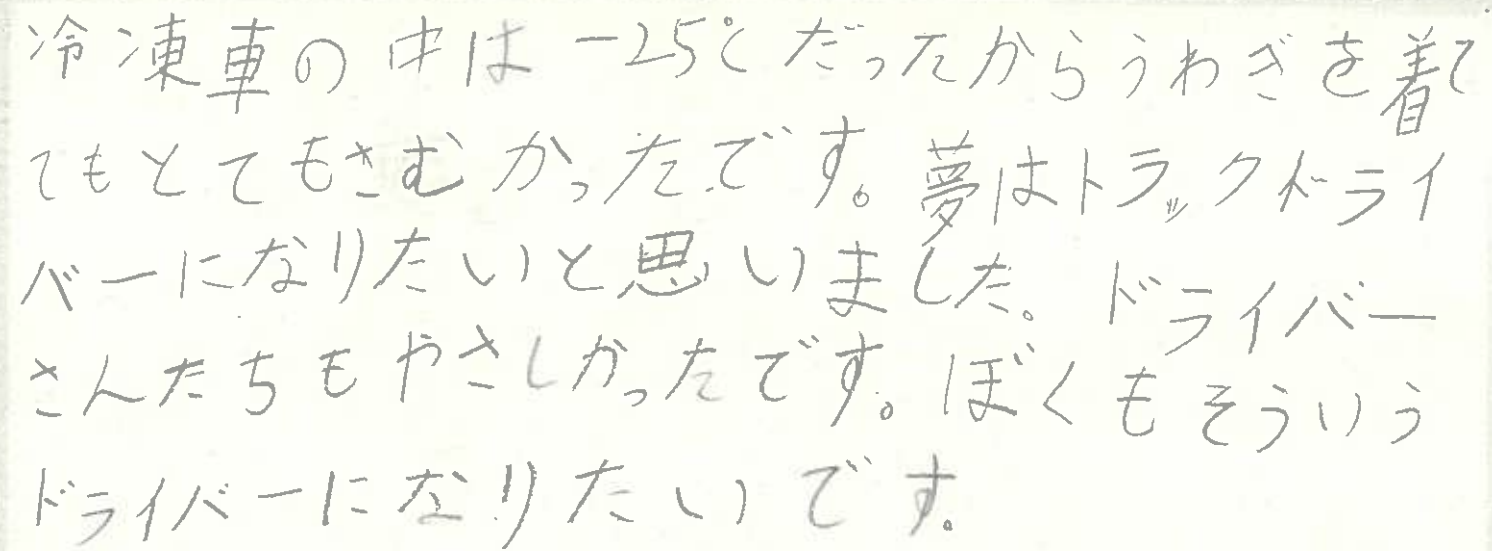 冷凍車の中は-25℃だったからうわぎを着て
てもとてもさむかったです。夢はトラックドライ
バーになりたいと思いました。ドライバー
さんたちもやさしかったです。ぼくもそういう
ドライバーになりたいです。